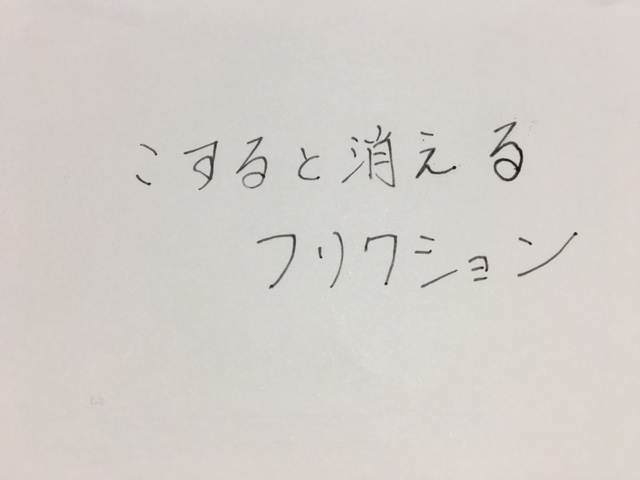 こすると消える
フリクション